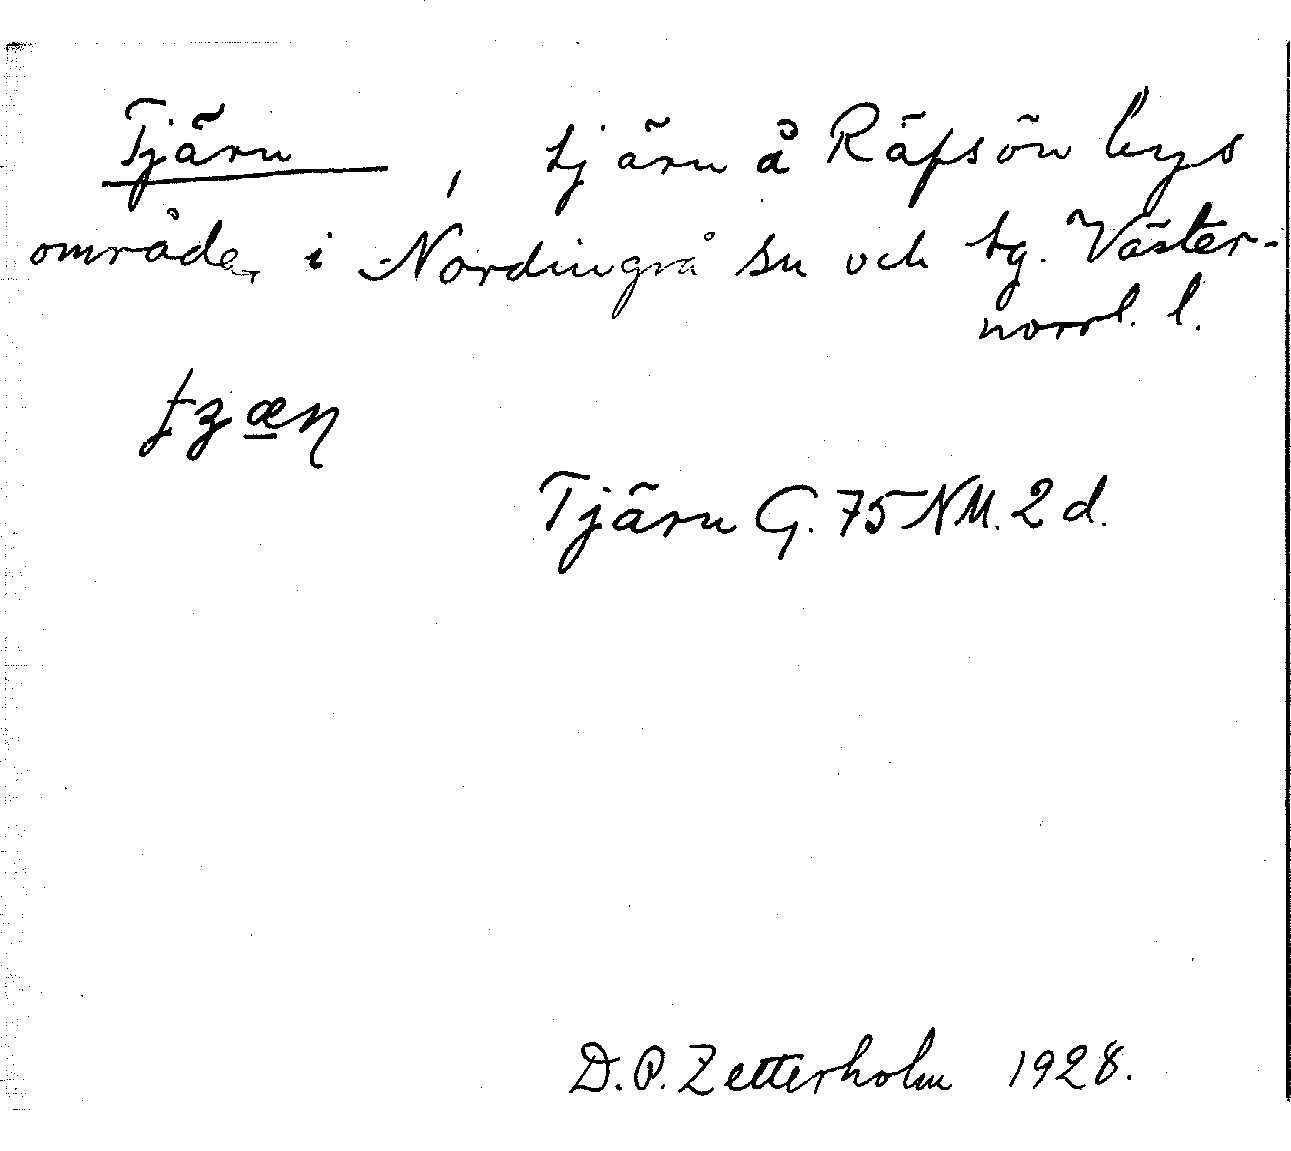 Tjärn, tjärn å Räfsön bys
område, i Nordingrå sn och tg. Väster-
norrl. l.
Tjärn G. 75 NM. 2 d.
D.O. Zetterholm 1928.